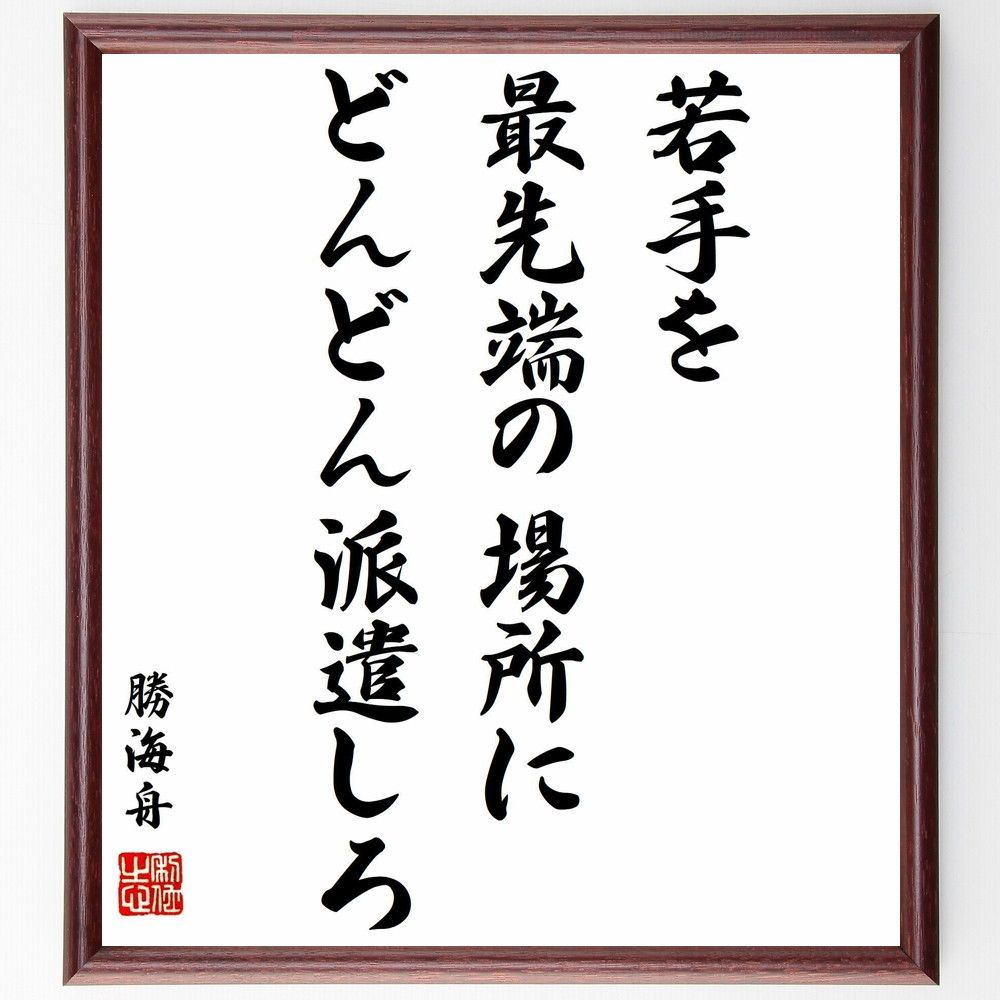 若手を
最先端の場所に
どんどん派遣しろ
勝海舟